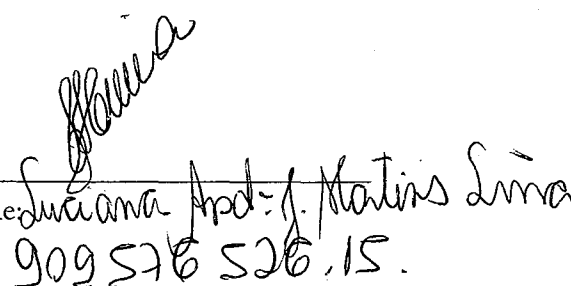 e: Luciana Apd: J. Martins Lima
909 576 526.15.